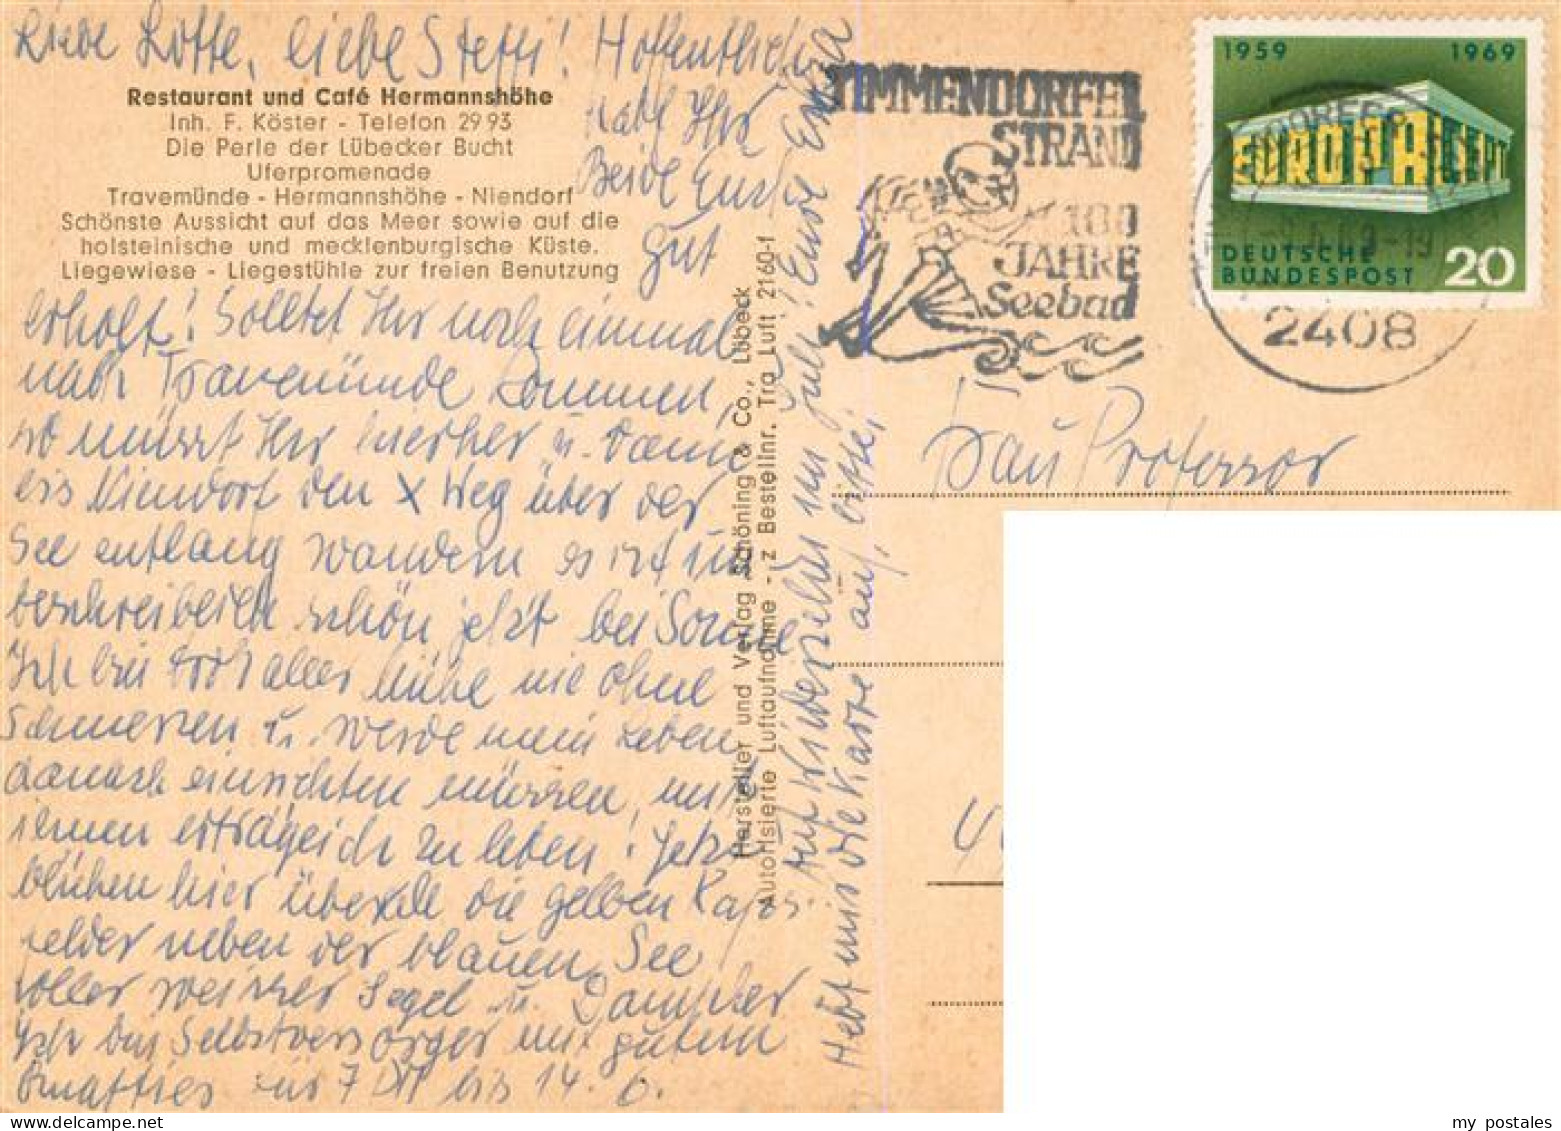 Liebe Lotte, liebe Steffi! Hoffentlich
Restaurant und Café Hermannshöhe
Inh. F. Köster - Telefon 29 93
Die Perle der Lübecker Bucht
Uferpromenade
Travemünde - Hermannshöhe - Niendorf
Schönste Aussicht auf das Meer sowie auf die
holsteinische und mecklenburgische Küste.
Liegewiese - Liegestühle zur freien Benutzung
habt Ihr
Beide Euch
gut
erholt! Solltet Ihr noch einmal
nach Travemünde kommen,
so müsst Ihr hierher u. dann
bis Niendorf den Weg über der
See entlang wandern es ist un
beschreiblich schön jetzt bei Sonne
Ich bin trotz aller Mühe nie ohne
Schmerzen u. werde mein Leben
danach einrichten müssen, mit
ihnen erträglich zu leben! Jetzt
blühen hier überall die gelben Raps
felder neben der blauen See
voller weisser Segel u. Dampfer
Ich bin Selbstversorger mit gutem
für 7 DM bis 14. 6.
Auf Wiedersehen im Juli! Eure Erika
Hebt mir die Karte auf, bitte,
Hersteller und Verlag Schöning & Co., Lübeck
Autorisierte Luftaufnahme - z Bestellnr. Tra Luft 2160-f
TIMMENDORFER
STRAND
100
JAHRE
Seebad
1959 1969
EUROPA CEPT
DEUTSCHE
BUNDESPOST 20
2408
Frau Professor
my postales